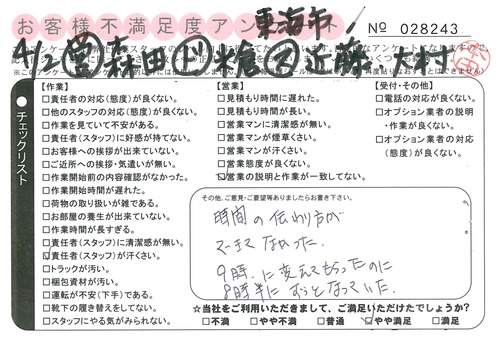 お客様不満足度アン
東海市
No 028243
4/2 営 森田 ド 米倉 ス 近藤、大村
【作業】
□責任者の対応(態度)が良くない。
□他のスタッフの対応(態度)が良くない。
□作業を見ていて不安がある。
□責任者(スタッフ)に好感が持てない。
□お客様への挨拶が出来ていない。
□ご近所への挨拶・気遣いが無い。
□作業開始前の内容確認がなかった。
□作業開始時間が遅れた。
□荷物の取り扱いが雑である。
□お部屋の養生が出来ていない。
□作業時間が長すぎる。
□責任者(スタッフ)に清潔感が無い。
□責任者(スタッフ)が汗くさい。
□トラックが汚い。
□梱包資材が汚い。
□運転が不安(下手)である。
□靴下の履き替えをしてない。
□スタッフにやる気がみられない。
チェックリスト
【営業】
□見積もり時間に遅れた。
□見積もり時間が長い。
□営業マンに清潔感が無い。
□営業マンが煙草くさい。
□営業マンが汗くさい。
□営業態度が良くない。
☑営業の説明と作業が一致してない。
【受付・その他】
□電話の対応が良くない。
□オプション業者の説明
・作業が良くない。
□オプション業者の対応
(態度)が良くない。
その他、ご意見・ご要望等ありましたらお書き下さい。
時間の伝わり方が
できてなかった。
9時に変えてもらったのに
8時半にずっとなっていた。
☆当社をご利用いただきまして、ご満足いただけたでしょうか?
□不満 □やや不満 □普通 ☑やや満足 □満足